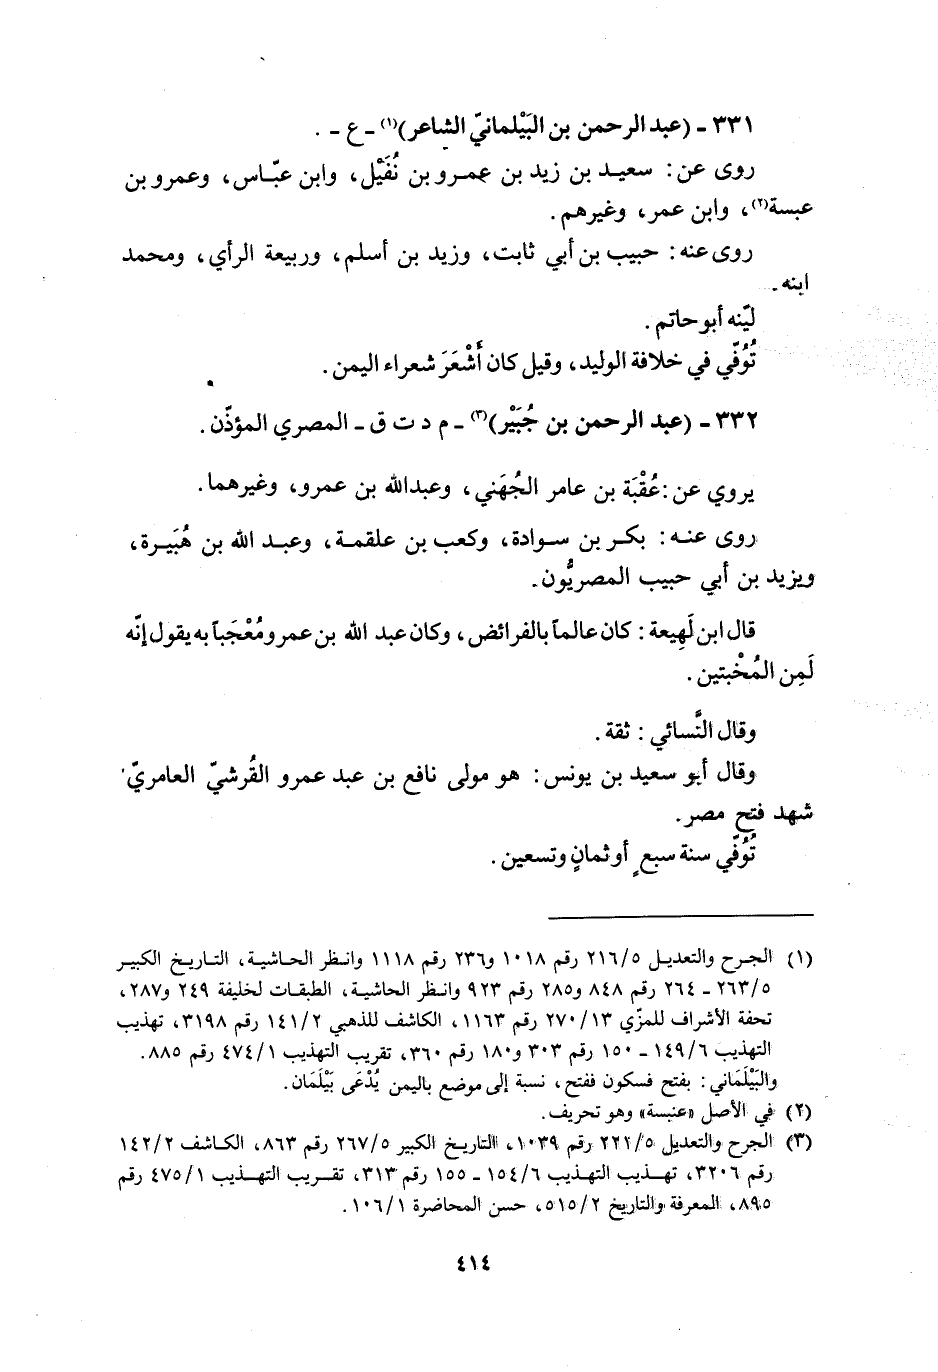 ٣٣١ - (عبد الرحمن بن البَيْلمانيّ الشاعر)(١) - ع - .
روى عن: سعيد بن زيد بن عمرو بن نُفَيْل، وابن عبّاس، وعمرو بن
عبسة(٢)، وابن عمر، وغيرهم.
روى عنه: حبيب بن أبي ثابت، وزيد بن أسلم، وربيعة الرأي، ومحمد
ابنه.
ليّنه أبو حاتم.
تُوُفّي في خلافة الوليد، وقيل كان أَشْعَرَ شعراء اليمن.
٣٣٢ - (عبد الرحمن بن جُبَيْر)(٣) - م د ت ق - المصري المؤذّن.
يروي عن: عُقْبَة بن عامر الجُهَني، وعبدالله بن عمرو، وغيرهما.
روى عنه: بكر بن سوادة، وكعب بن علقمة، وعبد الله بن هُبَيرة،
ويزيد بن أبي حبيب المصريُّون.
قال ابن لَهِيعة: كان عالماً بالفرائض، وكان عبد الله بن عمرو مُعْجَباً به يقول إنّه
لَمِن المُخْبتين.
وقال النَّسائي: ثقة.
وقال أبو سعيد بن يونس: هو مولى نافع بن عبد عمرو القُرشيّ العامريّ
شهد فتح مصر.
تُوُفّي سنة سبعٍ أو ثمانٍ وتسعين.
(١) الجرح والتعديل ٢١٦/٥ رقم ١٠١٨ و٢٣٦ رقم ١١١٨ وانظر الحاشية، التاريخ الكبير
٢٦٣/٥ - ٢٦٤ رقم ٨٤٨ و٢٨٥ رقم ٩٢٣ وانظر الحاشية، الطبقات لخليفة ٢٤٩ و٢٨٧،
تحفة الأشراف للمزّي ٢٧٠/١٣ رقم ١١٦٣، الكاشف للذهبي ١٤١/٢ رقم ٣١٩٨، تهذيب
التهذيب ١٤٩/٦ - ١٥٠ رقم ٣٠٣ و١٨٠ رقم ٣٦٠، تقريب التهذيب ٤٧٤/١ رقم ٨٨٥.
والبَيْلَمَاني: بفتح فسكون ففتح، نسبة إلى موضع باليمن يُدْعَى بَيْلَمَان.
(٢) في الأصل «عنبسة» وهو تحريف.
(٣) الجرح والتعديل ٢٢١/٥ رقم ١٠٣٩، التاريخ الكبير ٢٦٧/٥ رقم ٨٦٣، الكاشف ١٤٢/٢
رقم ٣٢٠٦، تهذيب التهذيب ١٥٤/٦ - ١٥٥ رقم ٣١٣، تقريب التهذيب ٤٧٥/١ رقم
٨٩٥، المعرفة والتاريخ ٥١٥/٢، حسن المحاضرة ١٠٦/١.
٤١٤